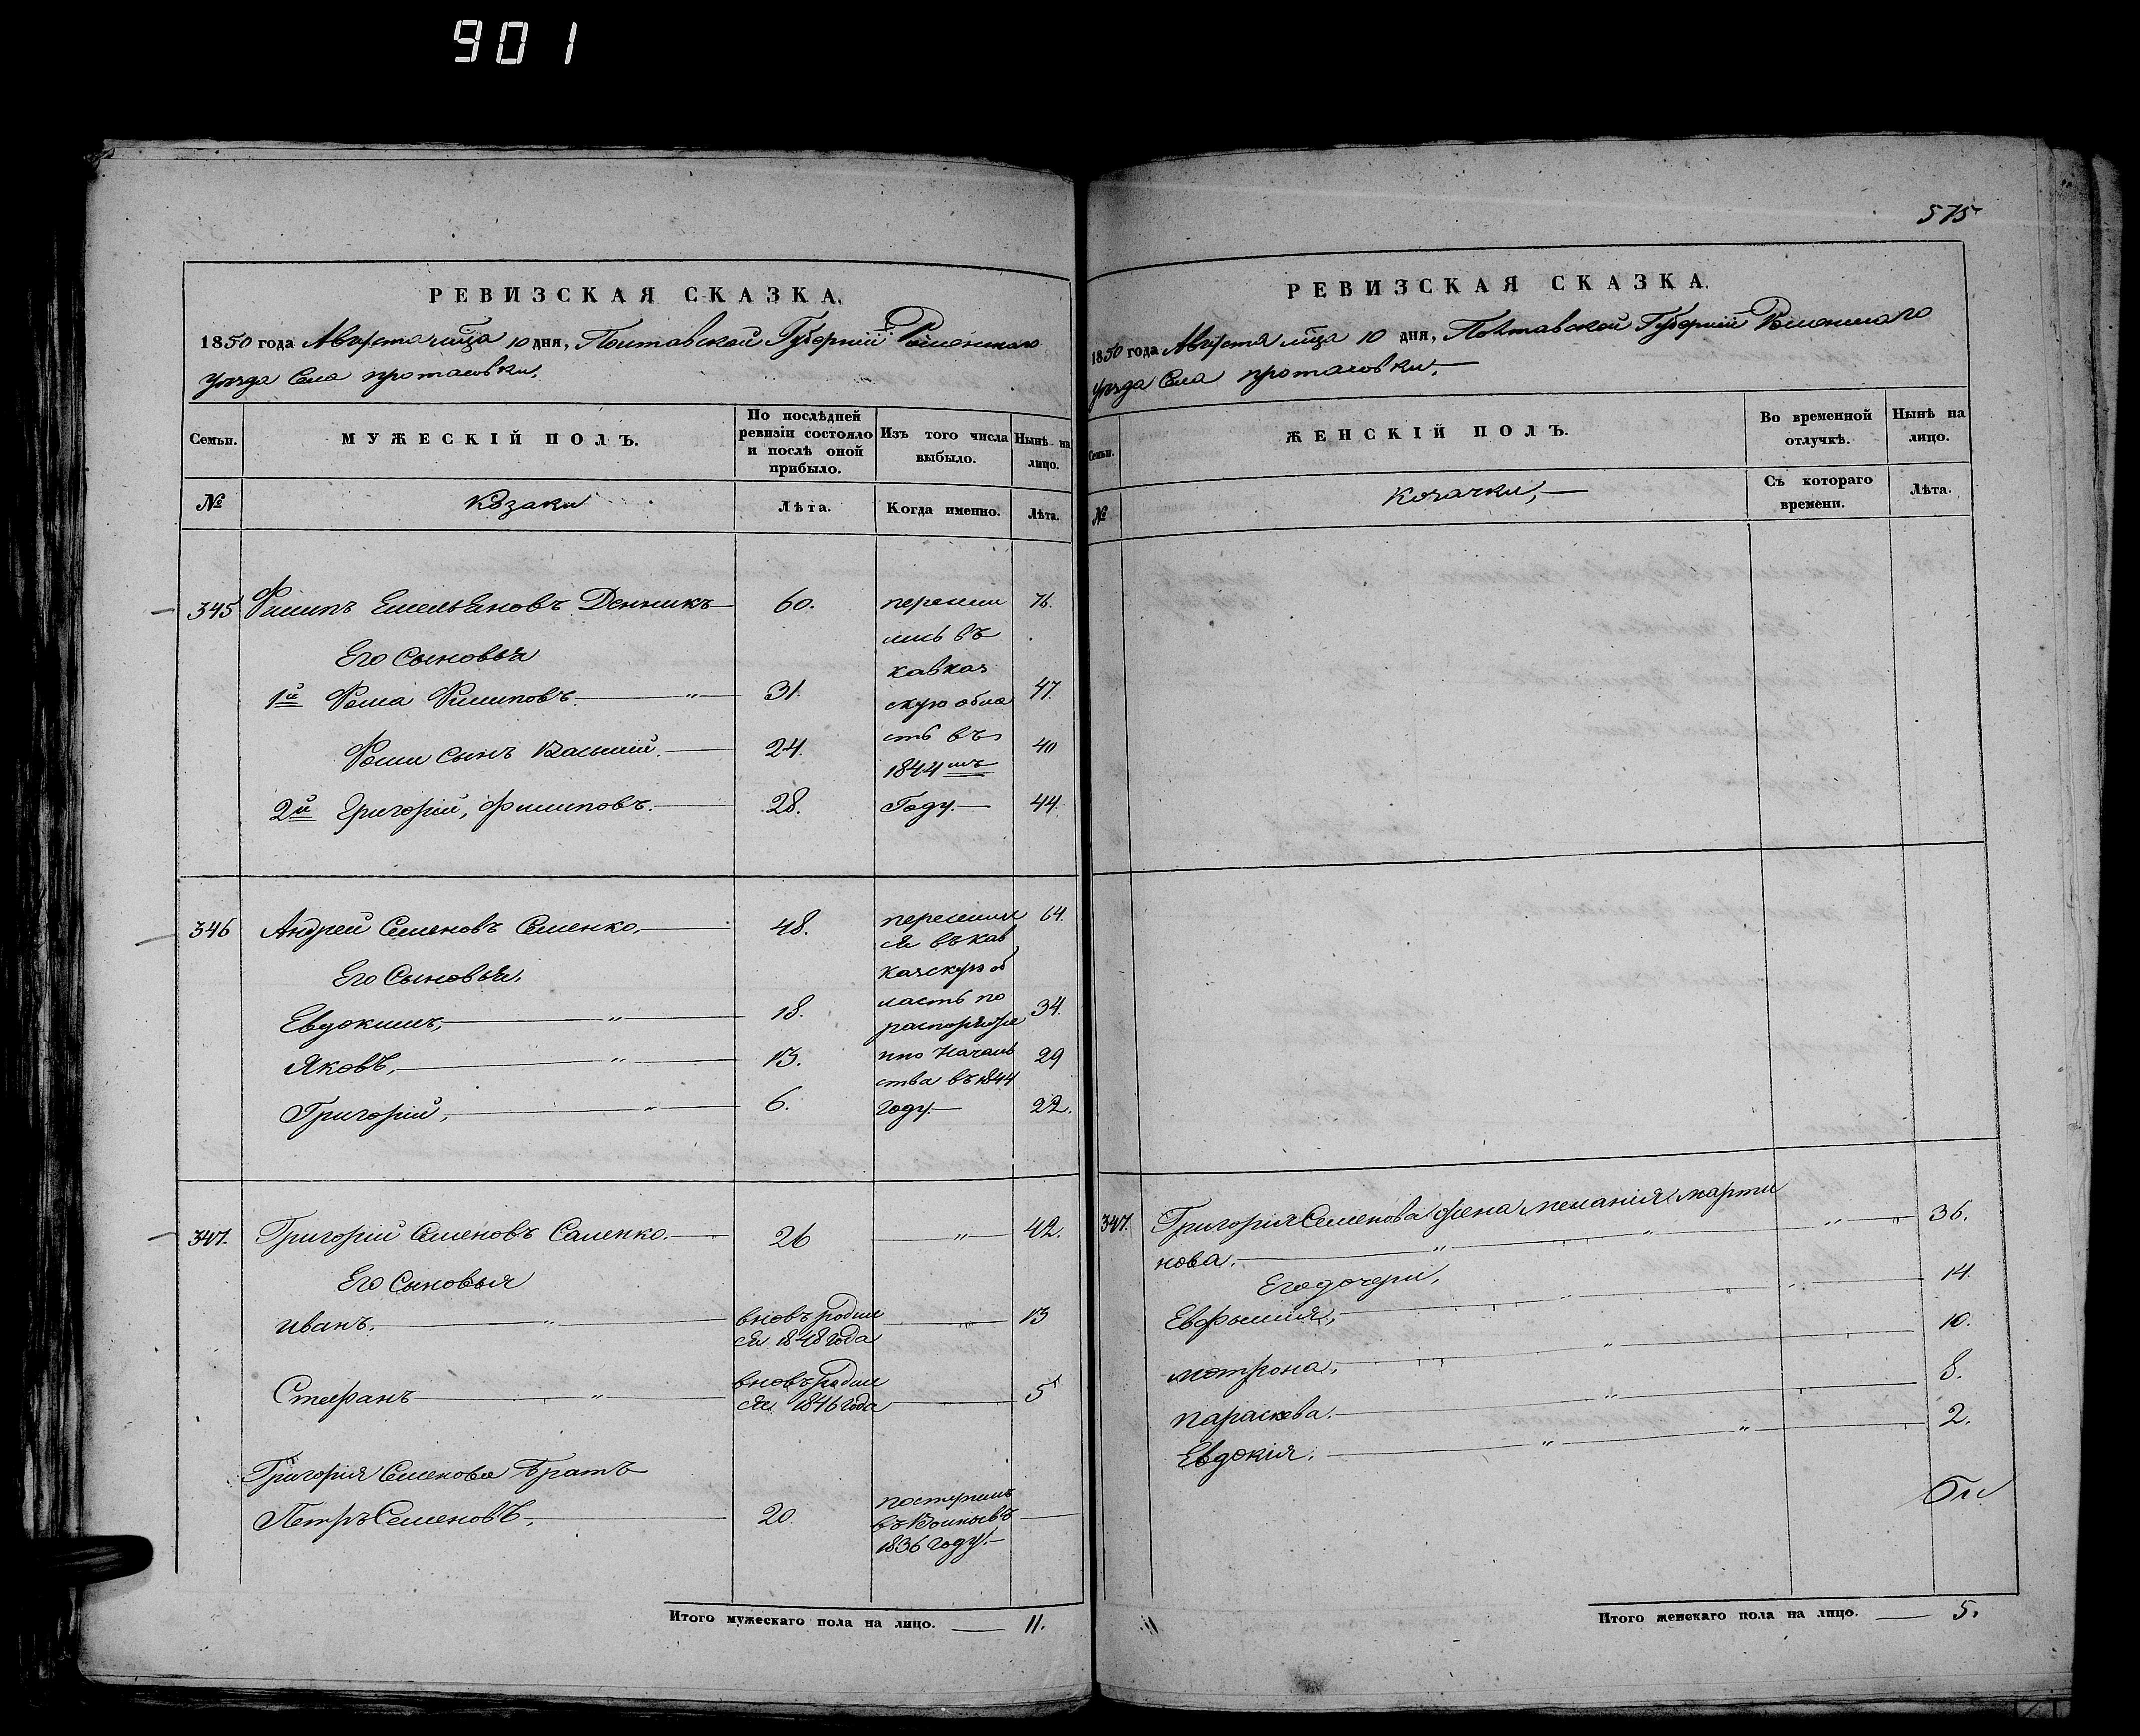 901
РЕВИЗСКАЯ СКАЗКА.
1850 года Августа мца 10 дня, Полтавской Губерніи Роменскаго
уезда Села протасовки,
Семьи.
МУЖЕСКІЙ ПОЛЪ.
По послѣдней
ревизіи состояло
и послѣ оной
прибыло.
Изъ того числа
выбыло.
Нынѣ на
лицо.
№
Козаки
Лѣта.
Когда именно.
Лѣта.
345 Филипъ Емельяновъ Денникъ 60. пересели 76.
Его Сыновья лись въ
1й Фома Филиповъ " 31. кавказ 47.
скую обла
Фомы сынъ Василий. 24. сть въ 40
1844мъ
2й Григорій, Филиповъ. 28. Году. 44.
346 Андрей Семеновъ Семенко, 48. переселил 64.
ся въ кав
Его Сыновья, казскую об
Евдокимъ, " 18. ласть по 34.
распоряже
Яковъ, " 13. нію Началь 29
ства въ 1844
Григорій, " 6. году. 22.
347. Григорій Семеновъ Саменко. 26 " 42.
Его Сыновья
иванъ. " вновь родил " 13
ся 1848 года
Стефанъ " вновь родил 5
ся 1846 года
Григорія Семенова Братъ
Петръ Семеновъ, 20. поступилъ
въ 
1836 году.
Итого мужескаго пола на лицо. 11.
575
РЕВИЗСКАЯ СКАЗКА.
1850 года Августа мца 10 дня, Полтавской Губерніи Роменскаго
уезда Села протасовки,
Семьи.
ЖЕНСКІЙ ПОЛЪ.
Во временной
отлучкѣ.
Нынѣ на
лицо.
№
Козачки,
Съ котораго
времени.
Лѣта.
347. Григорія Семенова жена меланія марти
нова. " " " 36.
Его дочери,
Евфимия, " 14.
мотрона, " 10.
параскева. " 8.
Евдокія, " " 2.
Итого женскаго пола на лицо. 5.